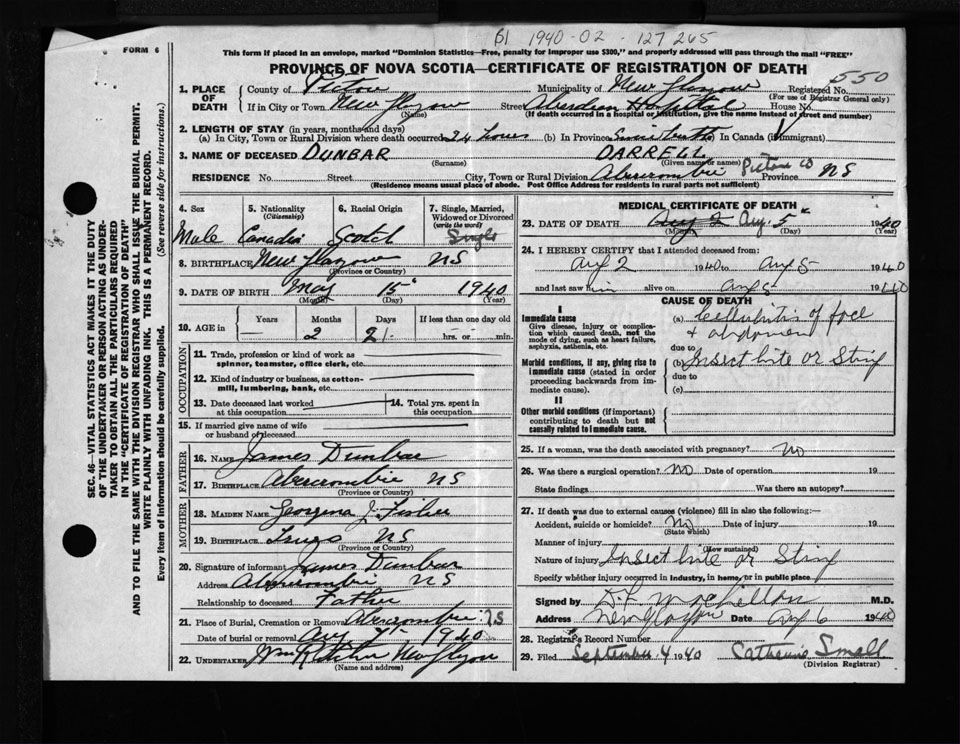 61 1940-02-127265
FORM 6
This form if placed in an envelope, marked "Dominion Statistics—Free, penalty for improper use $300," and properly addressed will pass through the mail "FREE"
PROVINCE OF NOVA SCOTIA—CERTIFICATE OF REGISTRATION OF DEATH
550
1. PLACE OF DEATH
County of Pictou Municipality of New Glasgow Registered No.
(For use of Registrar General only)
If in City or Town New Glasgow Street Aberdeen Hospital House No.
(Name) (If death occurred in a hospital or institution, give the name instead of street and number)
2. LENGTH OF STAY (in years, months and days)
(a) In City, Town or Rural Division where death occurred 24 hours (b) In Province Since birth In Canada (if immigrant)
3. NAME OF DECEASED DUNBAR DARRELL
(Surname) (Given name or names)
RESIDENCE No. Street City, Town or Rural Division Abercrombie Pictou Co Province NS
(Residence means usual place of abode. Post Office Address for residents in rural parts not sufficient)
4. Sex Male
5. Nationality (Citizenship) Canadian
6. Racial Origin Scotch
7. Single, Married, Widowed or Divorced (write the word) Single
8. BIRTHPLACE New Glasgow NS
(Province or Country)
9. DATE OF BIRTH May 15 1940
(Month) (Day) (Year)
10. AGE in Years Months Days If less than one day old
2 21 hrs. or min.
OCCUPATION
11. Trade, profession or kind of work as spinner, teamster, office clerk, etc.
12. Kind of industry or business, as cotton-mill, lumbering, bank, etc.
13. Date deceased last worked at this occupation
14. Total yrs. spent in this occupation
15. If married give name of wife or husband of deceased
FATHER
16. NAME James Dunbar
17. BIRTHPLACE Abercrombie NS
(Province or Country)
MOTHER
18. MAIDEN NAME Georgena J. Fisher
19. BIRTHPLACE Truro NS
(Province or Country)
20. Signature of informant James Dunbar
Address Abercrombie NS
Relationship to deceased Father
21. Place of Burial, Cremation or Removal Abercrombie NS
Date of burial or removal Aug 7 1940
22. UNDERTAKER New Glasgow
(Name and address)
MEDICAL CERTIFICATE OF DEATH
23. DATE OF DEATH Aug 2 Aug. 5 1940
(Month) (Day) (Year)
24. I HEREBY CERTIFY that I attended deceased from:
Aug 2 1940 to Aug 5 1940
and last saw him alive on Aug 5 1940
CAUSE OF DEATH
Immediate cause
Give disease, injury or complication which caused death, not the mode of dying, such as heart failure, asphyxia, asthenia, etc.
(a) Cellulitis of face & abdomen
due to
Morbid conditions, if any, giving rise to immediate cause (stated in order proceeding backwards from immediate cause).
(b) Insect bite or Sting
due to
(c)
II
Other morbid conditions (if important) contributing to death but not causally related to immediate cause.
25. If a woman, was the death associated with pregnancy? No
26. Was there a surgical operation? No Date of operation 19
State findings Was there an autopsy?
27. If death was due to external causes (violence) fill in also the following:—
Accident, suicide or homicide? No Date of injury 19
(State which)
Manner of injury
(How sustained)
Nature of injury Insect bite or Sting
Specify whether injury occurred in industry, in home, or in public place
Signed by M.D.
Address New Glasgow Date Aug 6 1940
28. Registrar's Record Number
29. Filed September 4 1940 Catherine Small
(Division Registrar)
SEC. 46—VITAL STATISTICS ACT MAKES IT THE DUTY
OF THE UNDERTAKER OR PERSON ACTING AS UNDER-
TAKER TO OBTAIN ALL THE PARTICULARS REQUIRED
IN THE "CERTIFICATE OF REGISTRATION OF DEATH"
AND TO FILE THE SAME WITH THE DIVISION REGISTRAR WHO SHALL ISSUE THE BURIAL PERMIT.
WRITE PLAINLY WITH UNFADING INK. THIS IS A PERMANENT RECORD.
Every item of information should be carefully supplied. (See reverse side for instructions.)